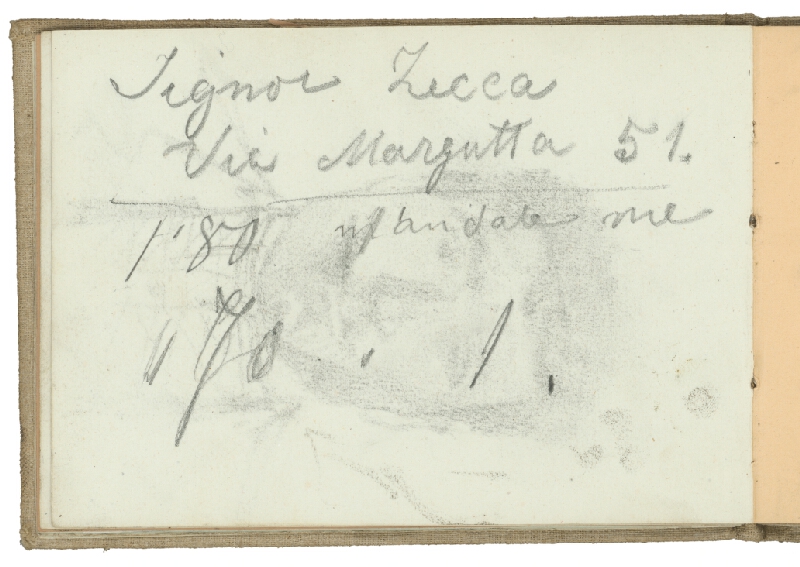 Signor Zecca
Via Margutta 51.
1'80 me
" 70 1.